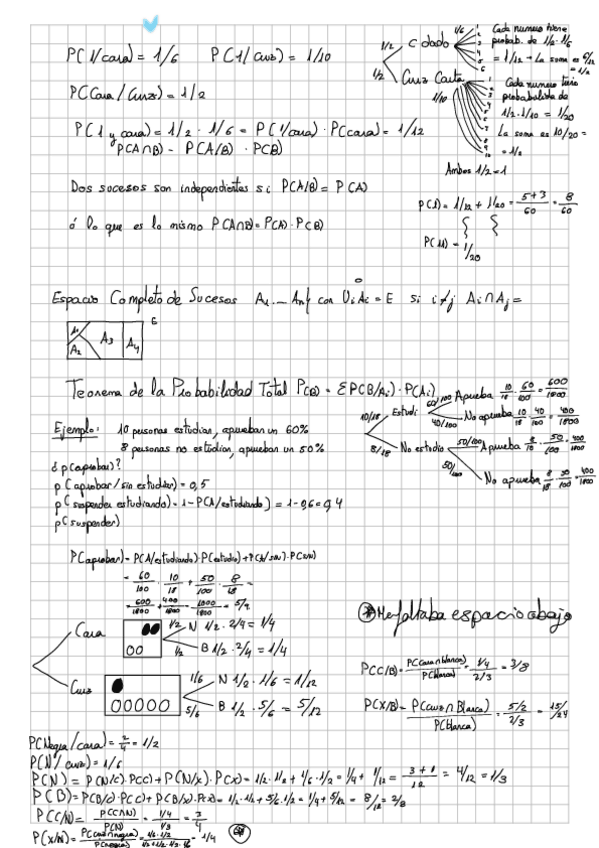 P(1/cara) = 1/6 P(1/cruz) = 1/10
P(Cara/Cruz) = 1/2
P(1 y cara) = 1/2 · 1/6 = P(1/cara) · P(cara) = 1/12
P(A∩B) = P(A/B) · P(B)
Dos sucesos son independientes si P(A/B) = P(A)
ó lo que es lo mismo P(A∩B) = P(A) · P(B)
1/2 C dado 1/6 1 2 3 4 5 6
1/2 Cruz Carta 1/10 1 2 3 4 5 6 7 8 9 10
Cada numero tiene
probab. de 1/2 · 1/6
= 1/12 → La soma es 6/12
= 1/2
Cada numero tiene
probabilidad de
1/2 · 1/10 = 1/20
La soma es 10/20 =
= 1/2
Ambos 1/2 = 1
P(1) = 1/12 + 1/20 = 5+3/60 = 8/60
1/20
Espacio Completo de Sucesos A1 ... An / con Ui Ai = E si i≠j Ai ∩ Aj =
A1 A2 A3 A4 E
Teorema de la Probabilidad Total P(B) = ΣP(B/Ai) · P(Ai)
Ejemplo: 10 personas estudian, aprueban un 60%
8 personas no estudian, aprueban un 50%
¿p(aprobar)?
p(aprobar/sin estudiar) = 0,5
p(suspender estudiando) = 1 - P(A/estudiando) = 1 - 0,6 = 0,4
p(suspender)
10/18 Estudi 60/100 Aprueba 10/18 · 60/100 = 600/1800
40/100 No aprueba 10/18 · 40/100 = 400/1800
8/18 No estudio 50/100 Aprueba 8/18 · 50/100 = 400/1800
50/100 No aprueba 8/18 · 50/100 = 400/1800
P(aprobar) = P(A/estudiando) · P(estudio) +
= 60/100 · 10/18 + 50/100 · 8/18 =
= 600/1800 + 400/1800 = 1000/1800 = 5/9
Cara 1/2 N 1/2 · 2/4 = 1/4
1/2 B 1/2 · 2/4 = 1/4
Cruz 1/6 N 1/2 · 1/6 = 1/12
5/6 B 1/2 · 5/6 = 5/12
Me faltaba espacio abajo
P(C/B) = P(cara∩blanca)/P(blanca) = 1/4 / 2/3 = 3/8
P(X/B) = P(cruz∩Blanca)/P(blanca) = 5/2 / 2/3 = 15/24
P(Negra/cara) = 2/4 = 1/2
P(N/cruz) = 1/6
P(N) = P(N/C) · P(C) + P(N/X) · P(X) = 1/2 · 1/2 + 1/6 · 1/2 = 1/4 + 1/12 = 3+1/12 = 4/12 = 1/3
P(B) = P(B/C) · P(C) + P(B/X) · P(X) = 1/2 · 1/2 + 5/6 · 1/2 = 1/4 + 5/12 = 8/12 = 2/3
P(C/N) = P(C∩N)/P(N) = 1/4 / 1/3 = 3/4
P(X/N) = P(cruz∩negra)/P(negra) = 1/4